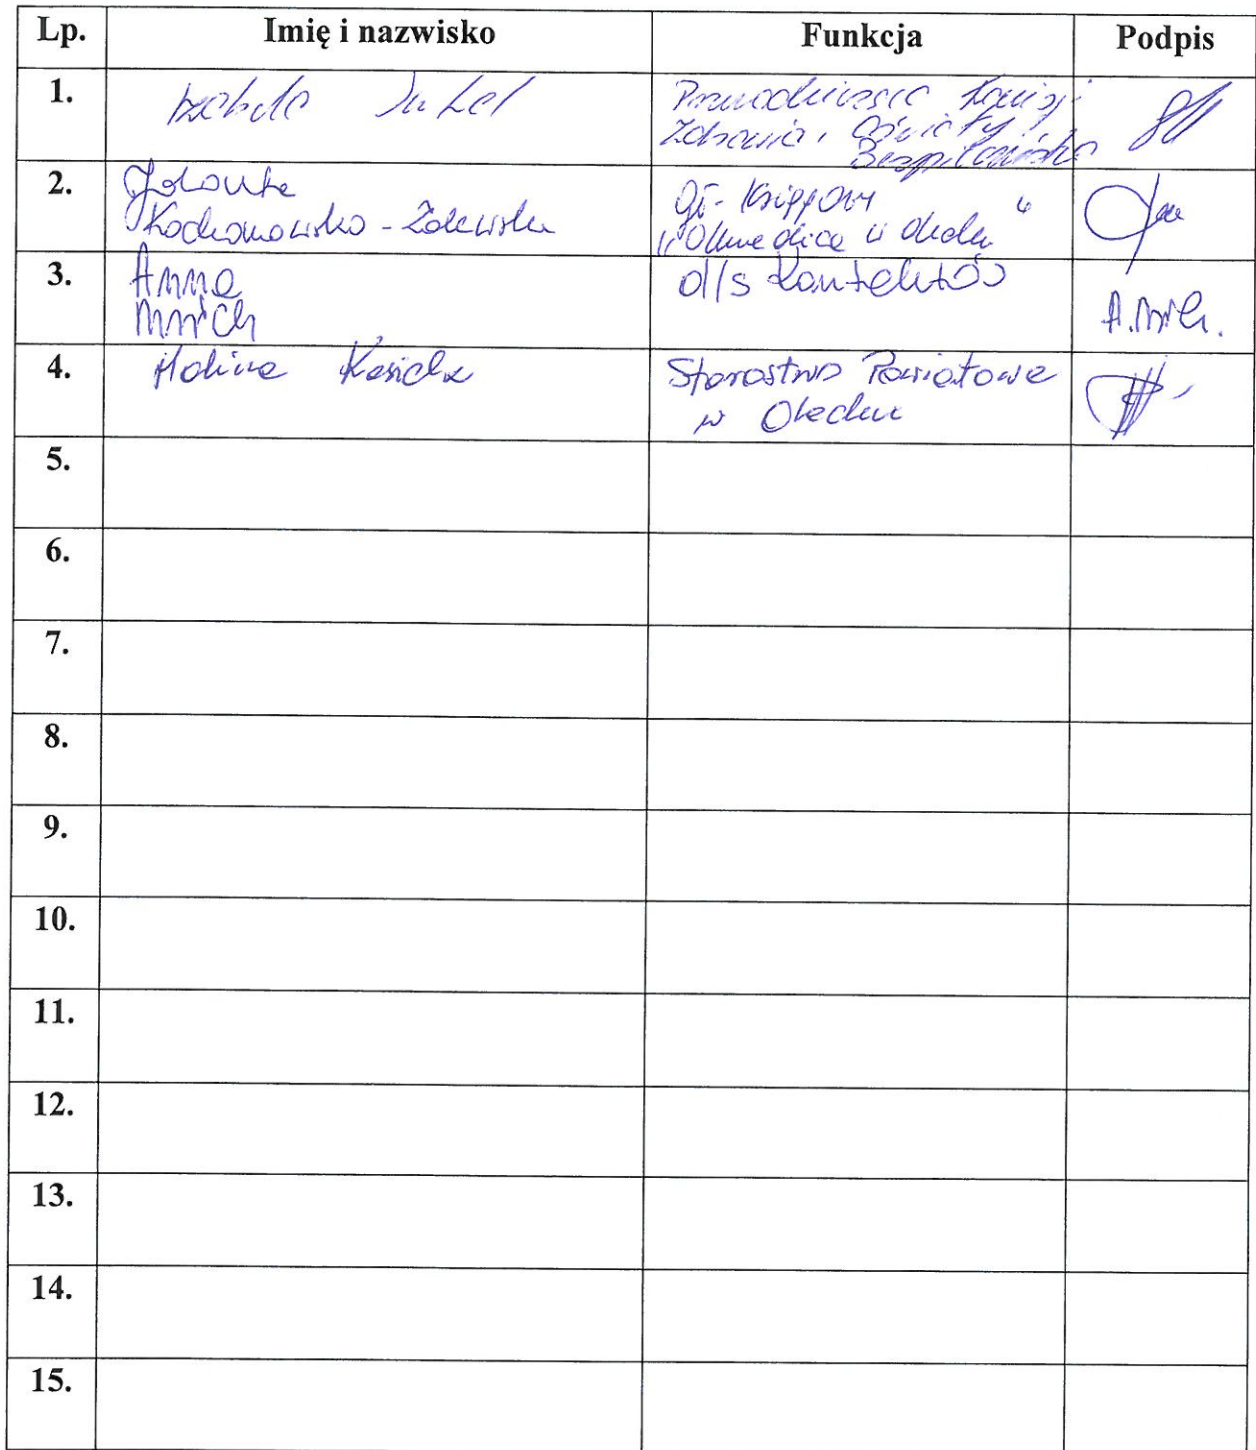 Lp. Imię i nazwisko Funkcja Podpis
1. Izabela Przewodnicząca Komisji
Zdrowia, Oświaty i
Bezpieczeństwa
2. Jolanta
Kochanowska-Zalewska
Gł. Księgowy
"Olmedica w Olecku"
3. Anna
Mnich
d/s kontaktów
A. Mnich.
4. Halina Starostwo Powiatowe
w Olecku
5.
6.
7.
8.
9.
10.
11.
12.
13.
14.
15.